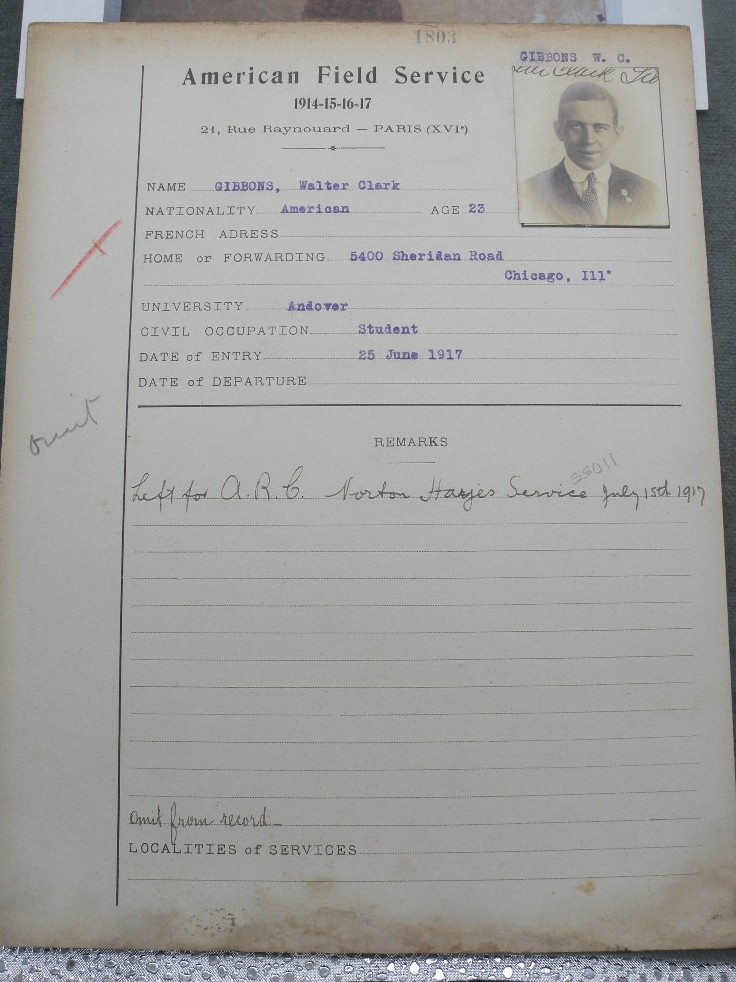 1803
GIBBONS W. C.
Clark
American Field Service
1914-15-16-17
21, Rue Raynouard — PARIS (XVIe)
NAME GIBBONS, Walter Clark
NATIONALITY American AGE 23
FRENCH ADRESS
HOME or FORWARDING 5400 Sheridan Road
Chicago, Ill"
UNIVERSITY Andover
CIVIL OCCUPATION Student
DATE of ENTRY 25 June 1917
DATE of DEPARTURE
omit
REMARKS
SSU11
Left for A.R.C. Norton Harjes Service July 15th 1917
omit from record —
LOCALITIES of SERVICES